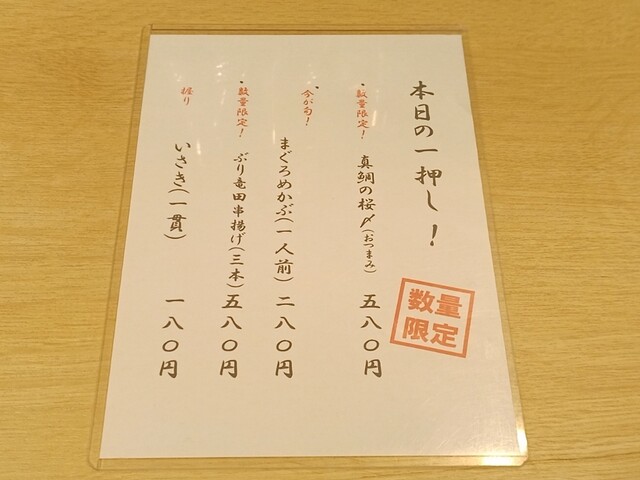 本日の一押し！
数量
限定
・数量限定！
真鯛の桜〆(おつまみ) 五八〇円
・今が旬！
まぐろめかぶ(一人前) 二八〇円
・数量限定！
ぶり竜田串揚げ(三本) 五八〇円
握り
いさき(一貫) 一八〇円